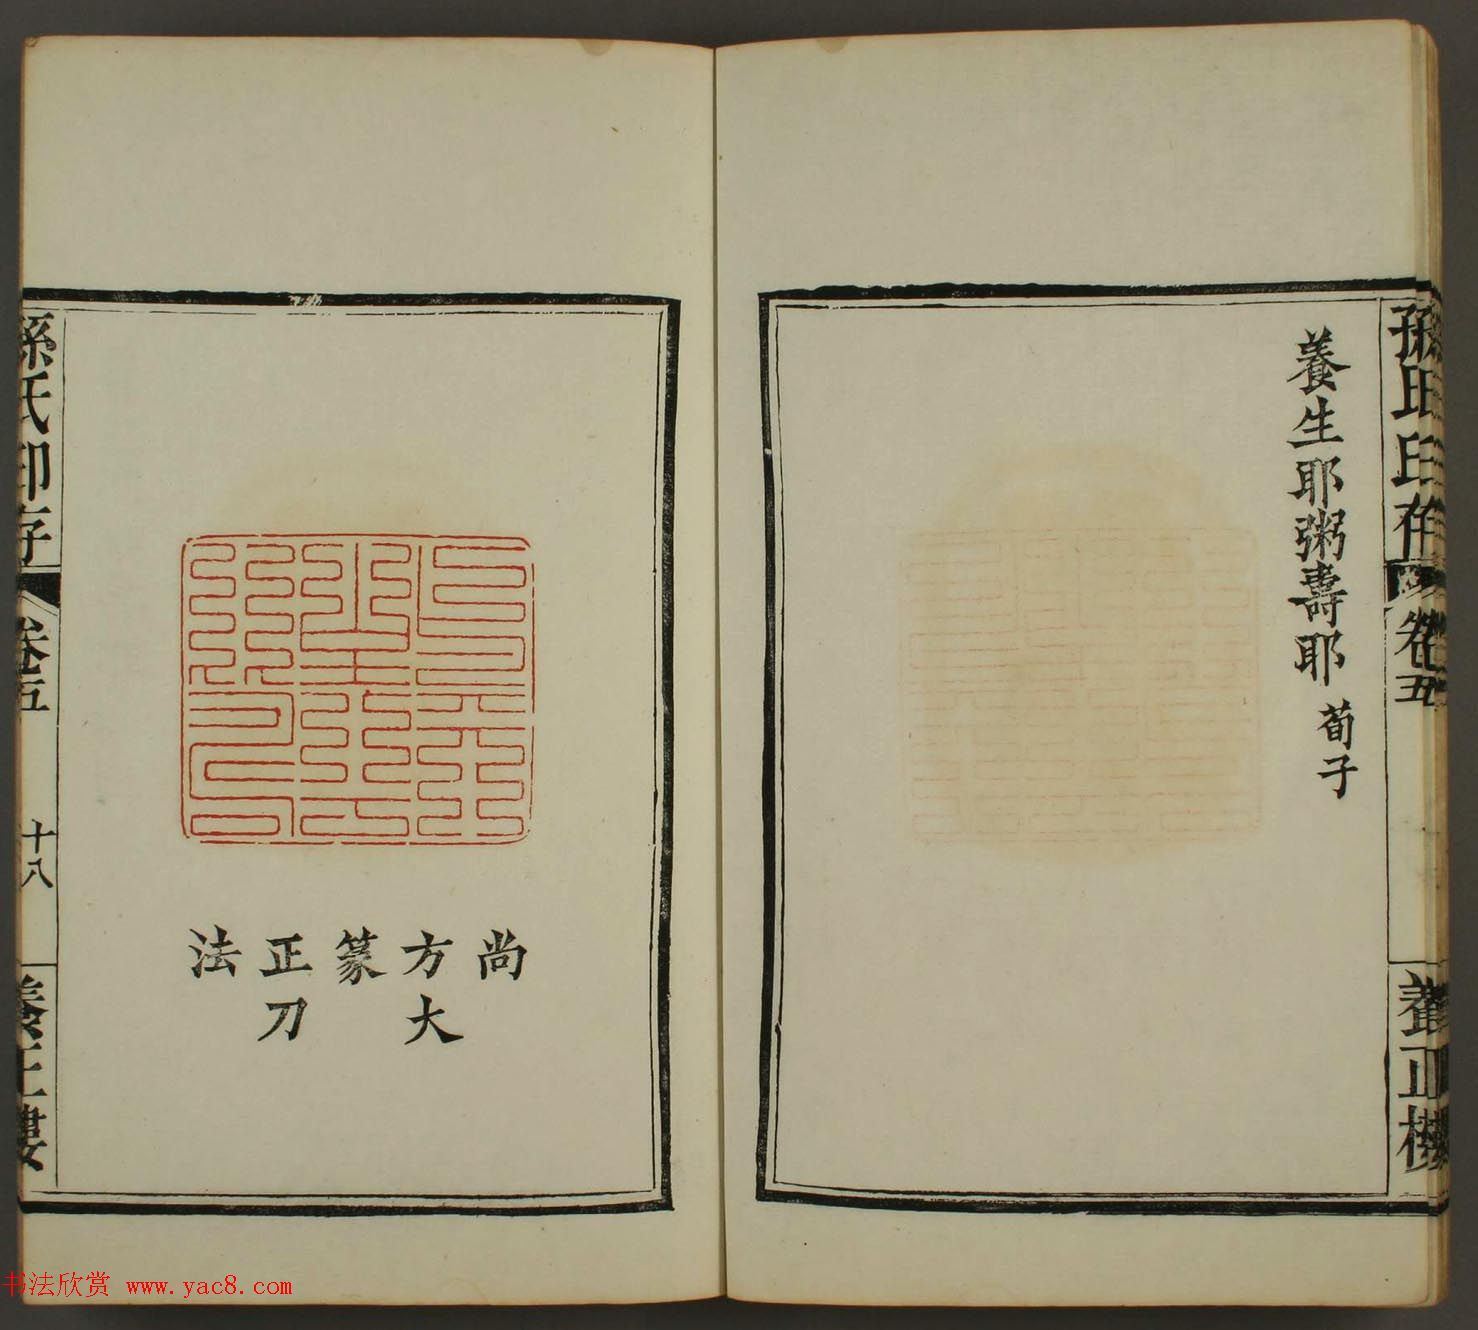 孫氏印存
卷五
養正樓
養生耶粥壽耶 荀子
尚
方大
篆
正刀
法
孫氏印存
卷五
十八
養正樓
书法欣赏 www.yac8.com